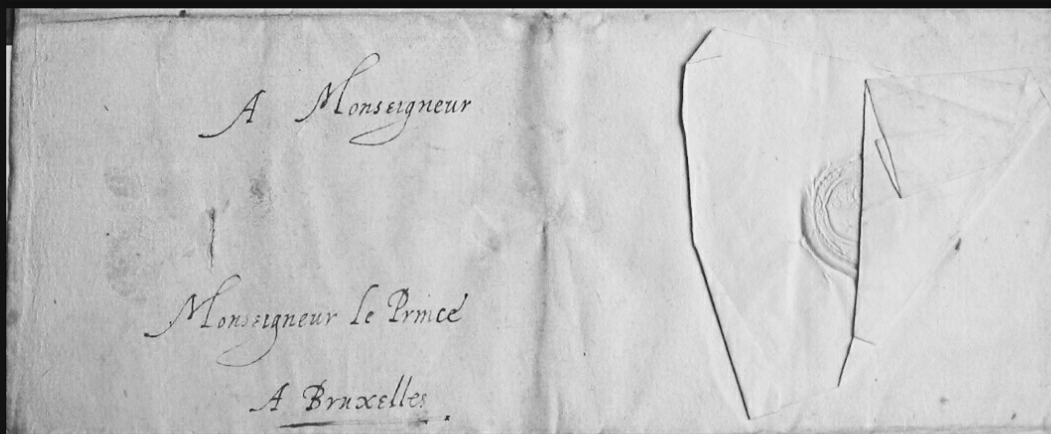 A Monseigneur
Monseigneur le Prince
A Bruxelles.